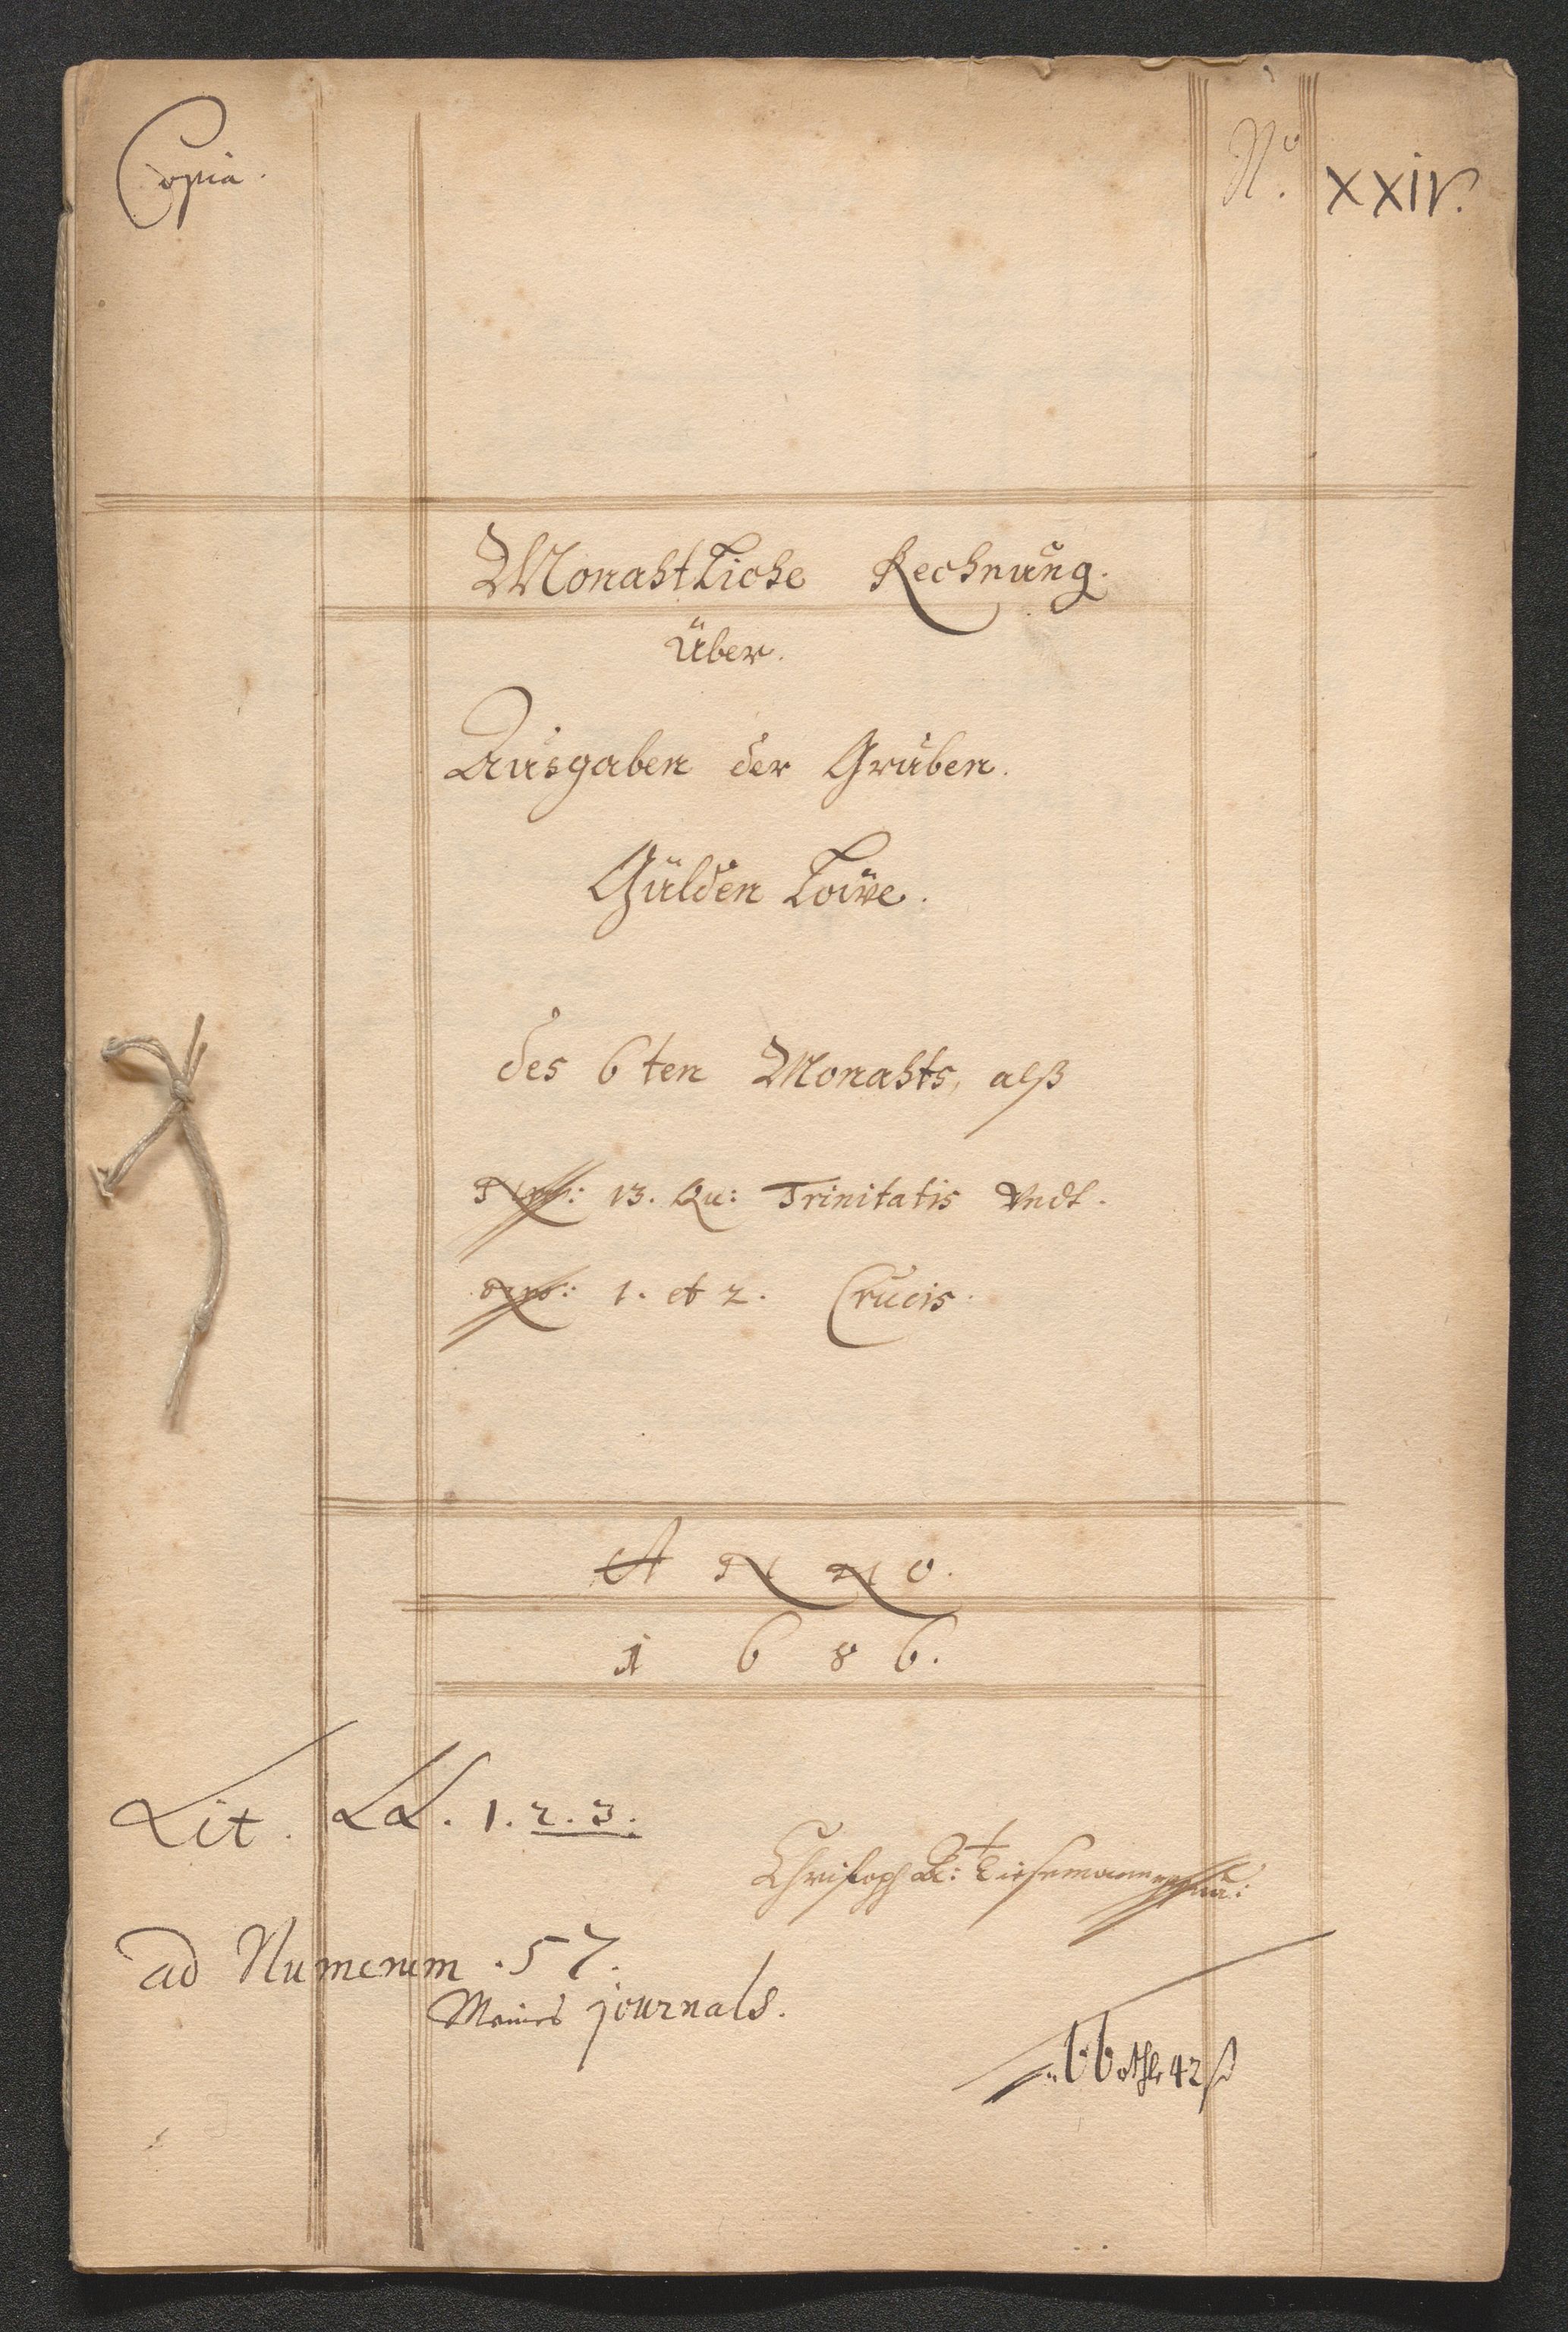 Copia.
No. XXIV.
Monahtliche Rechnung.
Über.
Ausgaben der Gruben.
Gülden Löwe.
des 6ten Monahts, alß
No: 13. Qu: Trinitatis Vndt.
No: 1. et 2. Crucis.
ANNO.
1686.
Lit. LL. 1.2.3.
Christoph
ad Numerum .57.
Meines journals.